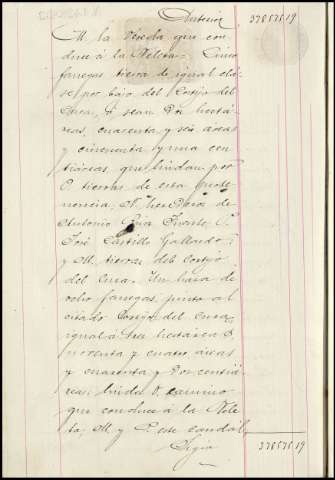 Anterior 3785757 19
M. la Vereda que con-
duce á la Meleta. Cinco
fanegas tierra de igual cla-
se por bajo del Cortijo del
Cura, ó sean dos hectá-
reas, cuarenta y seis áreas
y cincuenta y una cen-
tiáreas, que lindan por
O. tierras de esta perte-
nencia, N. herederos de
Antonio Iriarte, P.
José Castillo Gallardo;
y M. tierras del Cortijo
del Cura. Una haza de
ocho fanegas, junto al
citado Cortijo del Cura,
igual á tres hectáreas
noventa y cuatro áreas
y cuarenta y dos centiá-
reas: linda O. camino
que conduce á la Mele-
ta, M. y P. este caudal,
Sigue 3785757 19